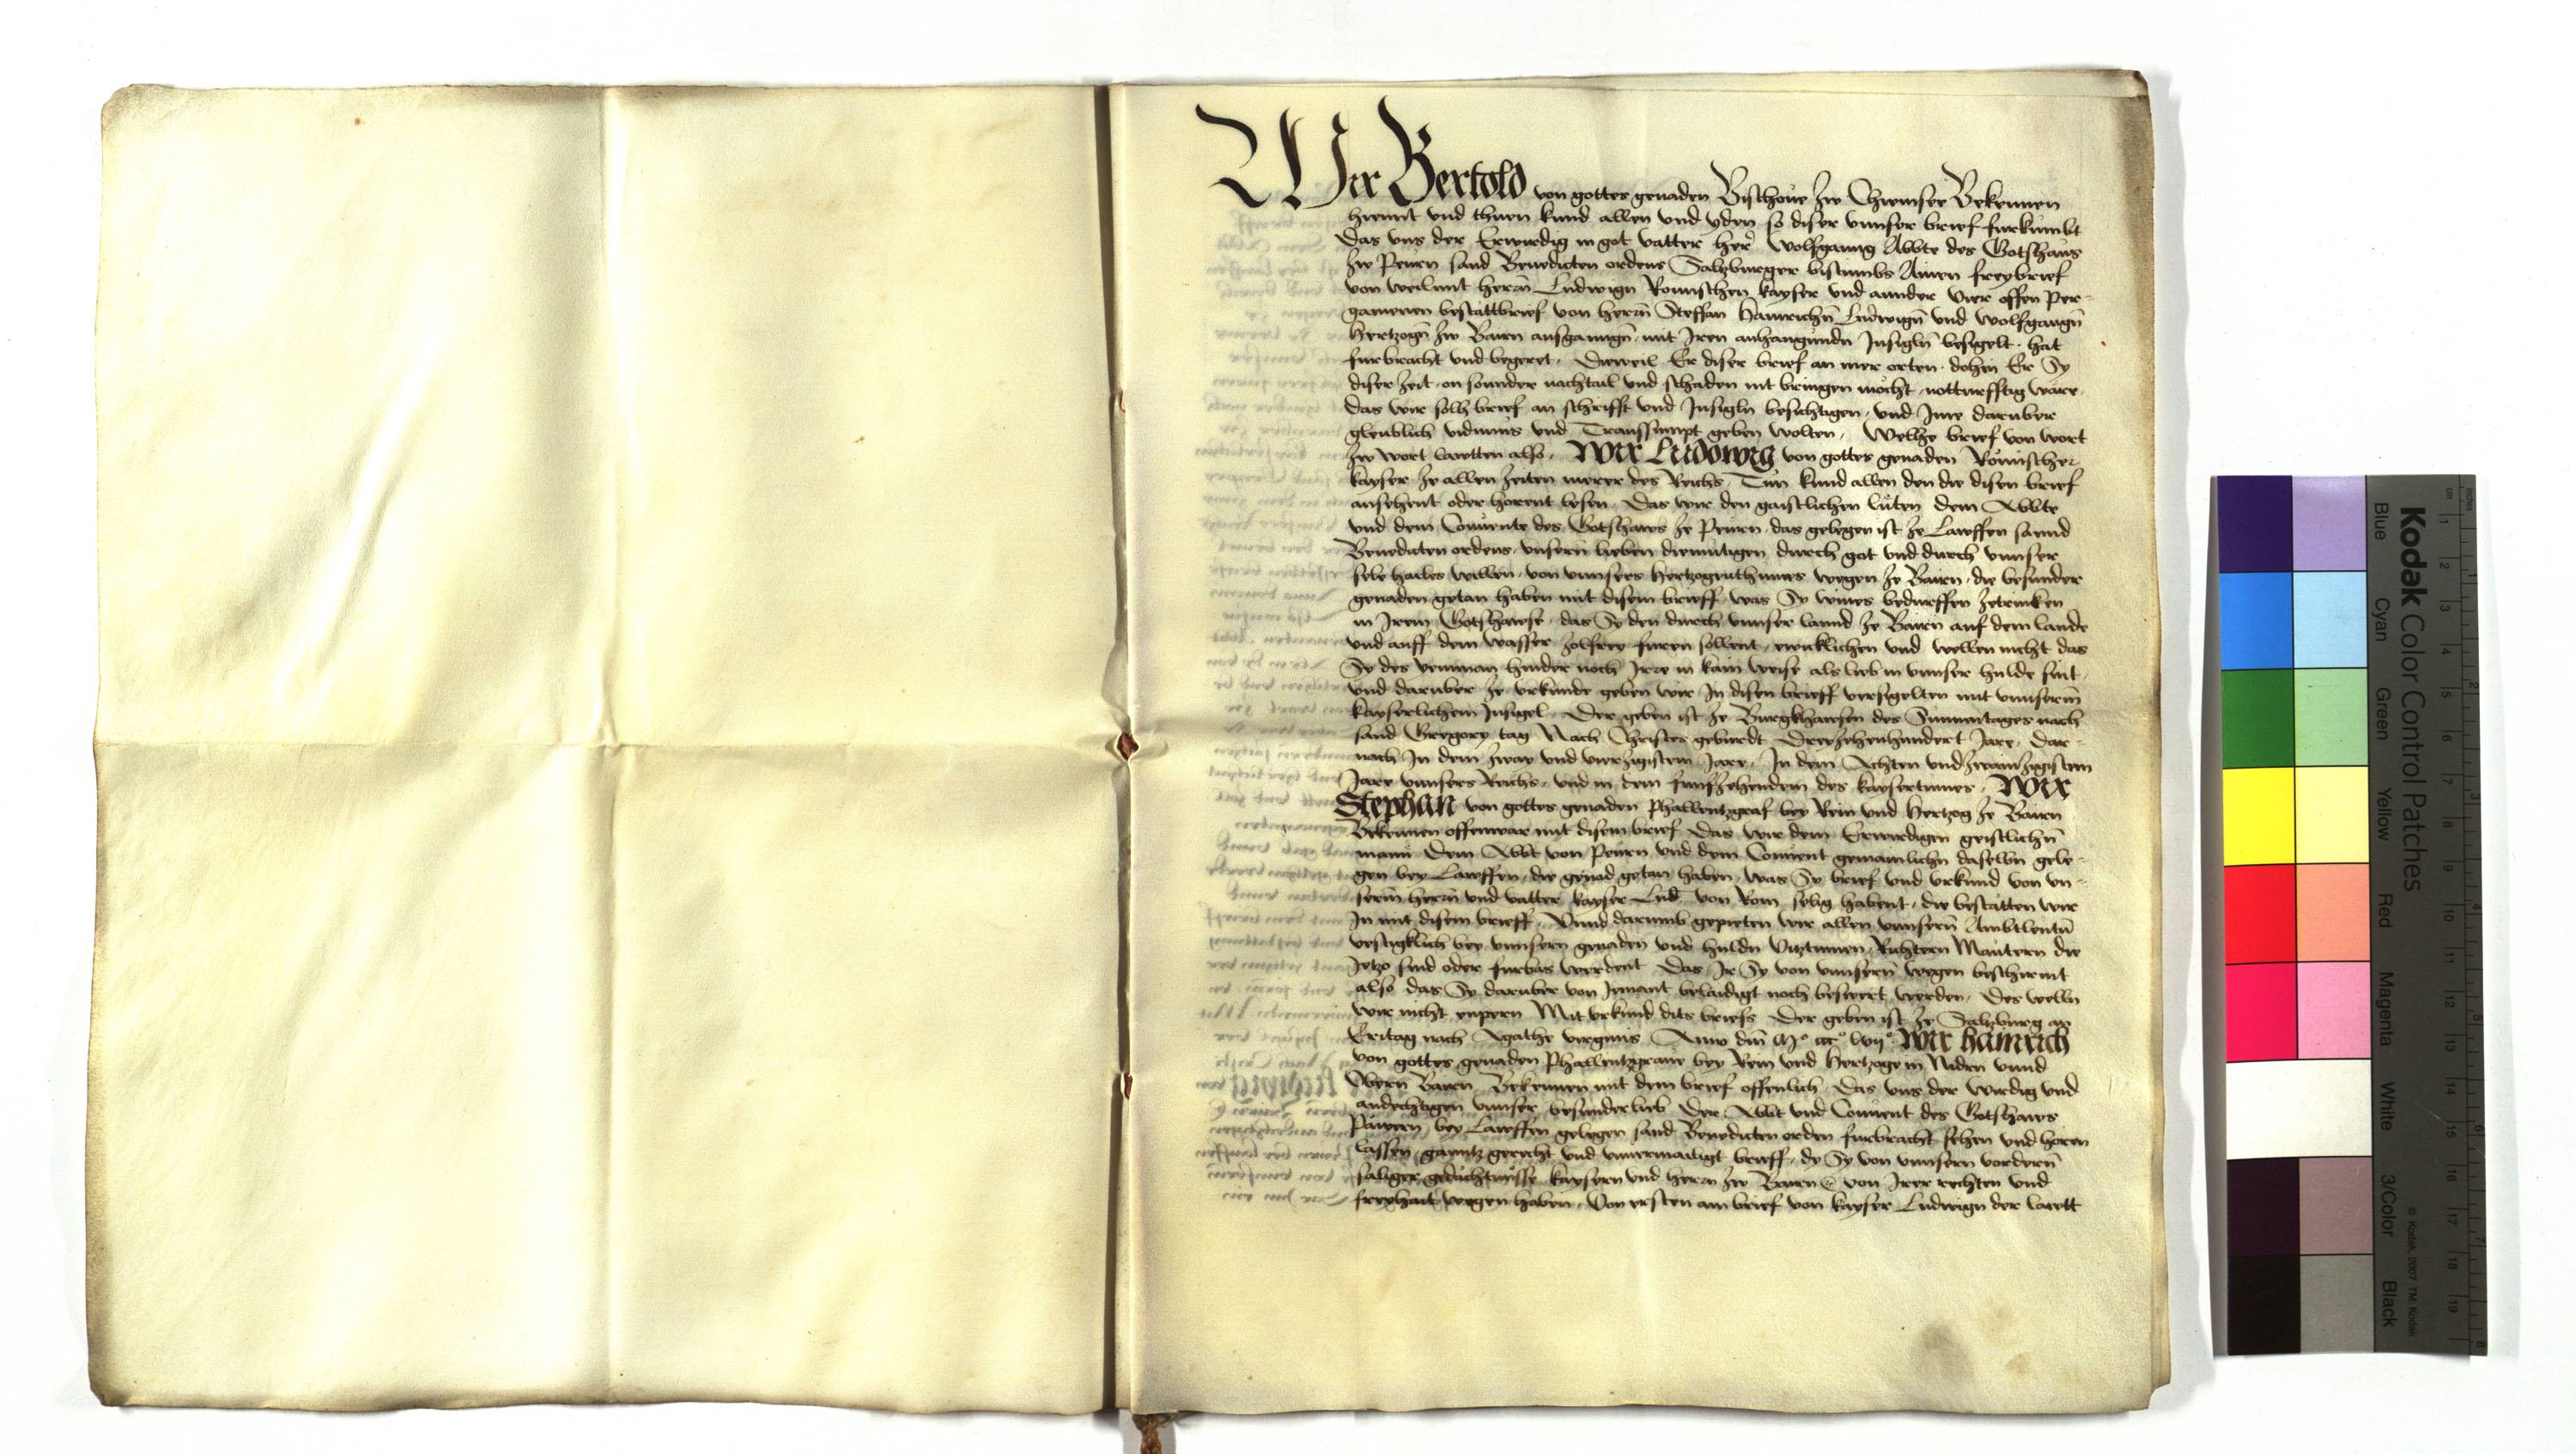 Wir Bertold von gottes genaden Bischoue zw Chiemsee Bekennen
hiemit vnd thuen kund allen vnd yden so diser vnnser brief furkumbt
Das vns der Erwirdig in got vatter her Wolfganng Abbte des Gotshaws
zw Peurn sand Benedicten ordens Saltzburger bistumbs Ainen freybrief
von weilent herrn Ludwign Romischen kayser vnd annder vier offen per-
gamenen bestattbrief von herrn Steffan Hainrichn Ludwign vnd Wolfgangn
Hertzogn zw Bairn ausganngn mit Iren anhangundn Insigln besigelt hat
furbracht vnd begeret. Dieweil Er diser brief an mer orten dohin Er Sy
diser zeit on sonnder nachtail vnd schaden nit bringen mocht notturfftig wäre
das wir solh brief an schrifft vnd Insigln besichtigen vnd Ime daruber
glaublich vidimus vnd Transsumpt geben wolten. Welhe brief von wort
zw wort lawtten also. Wir Ludowig von gottes genaden Römischer
kayser ze allen zeiten merer des Reichs Tun kund allen den die disen brief
ansehent oder horent lesen Das wir den gaistlichen luten dem Abbte
vnd dem Conuente des Gotshaws ze Peurn das gelegen ist ze Lawffen sannd
Benedicten ordens vnsern lieben diemutigen durch got vnd durch vnnser
sele hailes willen von vnnsers Hertzogenthumes wegen ze Bairn die besunder
genaden getan haben mit disem brieff was Sy weines bedurffen zetrinken
in Irem Gotshawse das Sy den durch vnnser lannd ze Bairn auf dem lande
vnd auff dem wasser zolfrey furen sollent ewicklichen vnd wellen nicht das
Sy des yemman hinder noch Irre in kain weise als lieb in vnnser hulde sint
vnd daruber ze vrkunde geben wir In disen brieff versigelten mit vnnserm
kayserlichem Insigel Der geben ist ze Burgkhawsen des Sunnentages nach
sand Gregory tag Nach Christes geburdt Drewzehenhundert Jare dar-
nach In dem zway vnd vierzigistem Jare In dem Achten vnd zwainzigistem
Jare vnnsers Reichs vnd in dem funfzehendem des kaysertumes. Wir
Stephan von gottes genaden Phallentzgraf bey Rein vnd Hertzog ze Bairn
Bekennen offenwar mit disem brief Das wir dem Erwirdigen geistlichn
mann Dem Abbt von Peurn vnd dem Conuent gemainlichn daselbn gele-
gen bey Lawffen die genad getan haben was Sy brief vnd vrkund von vn-
serm herrn vnd vatter kayser Lud von Rom selig habent die bestatten wir
In mit disem brieff. Vnnd darumb gepieten wir allen vnnsern Ambtleutn
vestigklich bey vnnsern genaden vnd huldn Viztumen Richtern Mautern die
Jetzo sind oder furbas werdent Das Ir Sy von vnnsern wegen beschirmt
also das Sy daruber von Jemant belaidigt noch beswert werden Des welln
wir nicht enpern Mit vrkund dits briefs Der geben ist ze Saltzburg an
Freitag nach Agathe virginis Anno dm Mo ccco lvijo Wir Hainrich
von gottes genaden Phallentzgraue bey Rein vnd Hertzoge in Nidern vnnd
Obern Bairn Bekennen mit dem brief offenlich Das vns der wirdig vnd
andechtigen vnnser besunderlieb Der Abbt vnd Conuent des Gotshaws
Päwern bey Lawffen gelegen sand Benedicten orden furbracht sehen vnd horen
lassen ganntz gerecht vnd vnuermailigt brieff dy Sy von vnnsern vordern
saliger gedächtnusse kaysern vnd herrn zw Bairn von Irer rechten vnd
freyhait wegen haben Von ersten ain brief von kayser Ludwign der lawtt
Kodak Color Control Patches
Blue Cyan Green Yellow Red Magenta White 3/Color Black
© Kodak, 2007 TM: Kodak
cm 1 2 3 4 5 6 7 8 9 10 11 12 13 14 15 16 17 18 19
inches 1 2 3 4 5 6 7 8